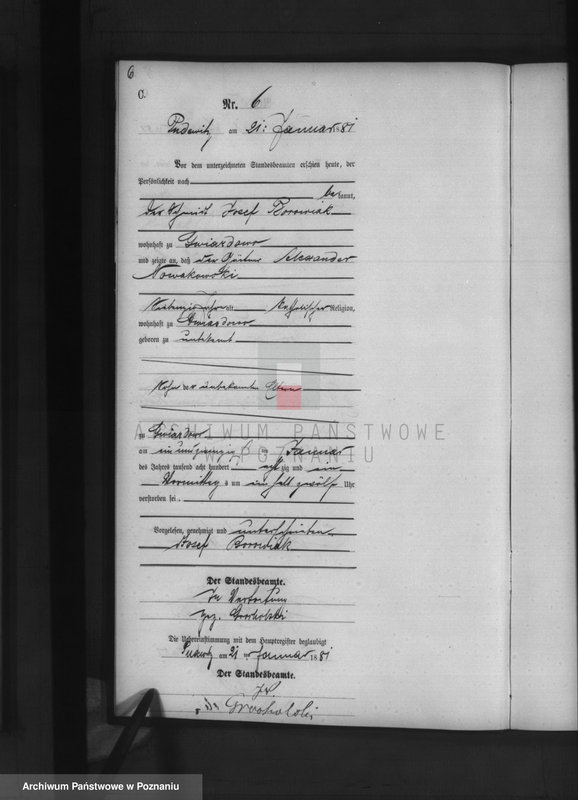 6
C.
Nr. 6
Pudewitz am 21. Januar 1881
Vor dem unterzeichneten Standesbeamten erschien heute, der
Persönlichkeit nach
bekannt,
der Schmied Josef Borowiak
wohnhaft zu Gwiazdowo
und zeigte an, daß der Alexander
Nowakowski
Siebenzig Jahre alt, Katholischer Religion,
wohnhaft zu Gwiazdowo
geboren zu unbekannt
Sohn der unbekannten Eltern
zu Gwiazdowo
am einundzwanzigsten Januar
des Jahres tausend acht hundert achtzig und ein
Vormittags um ein halb zwölf Uhr
verstorben sei.
Vorgelesen, genehmigt und unterschrieben
Josef Borowiak
Der Standesbeamte.
In Vertretung
gez. Grocholski
Die Uebereinstimmung mit dem Hauptregister beglaubigt
Pudewitz am 21ten Januar 1881
Der Standesbeamte.
In
Grocholski
ARCHIWUM PAŃSTWOWE
W POZNANIU
Archiwum Państwowe w Poznaniu